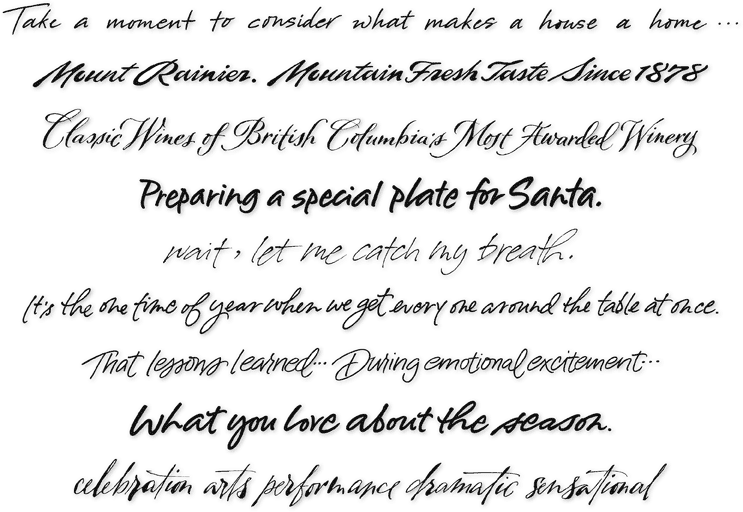 Take a moment to consider what makes a house a home ...
Mount Rainier. Mountain Fresh Taste Since 1878
Classic Wines of British Columbia's Most Awarded Winery
Preparing a special plate for Santa.
wait, let me catch my breath.
It's the one time of year when we get every one around the table at once.
That lessons learned... During emotional excitement...
What you love about the season.
celebration arts performance dramatic sensational